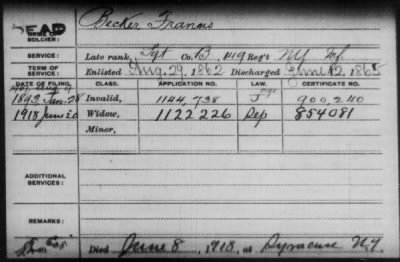 DEAD Becker Francis
NAME OF SOLDIER:
SERVICE: Late rank, Sgt Co. B, 149 Reg't NY Inf
TERM OF SERVICE: Enlisted Aug. 29, 1862 Discharged June 12, 1865
CLASS. APPLICATION NO. LAW. CERTIFICATE NO.
1893 Jan. 28 Invalid, 1144,738 900,240
1918 June 20 Widow, 1122226 Dep 854081
Minor,
ADDITIONAL SERVICES:
REMARKS:
Died June 8, 1918, at Syracuse N.Y.